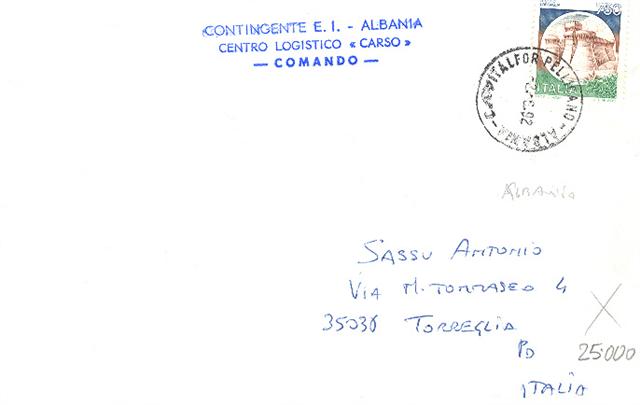 CONTINGENTE E. I. - ALBANIA
CENTRO LOGISTICO « CARSO »
— COMANDO —
750
ITALIA
ITALFOR PELLICANO - ALBANIA -
92
ALBANIA
SASSU ANTONIO
VIA M. TOMMASEO 4
35038 TORREGLIA
PD
ITALIA
X
25.000